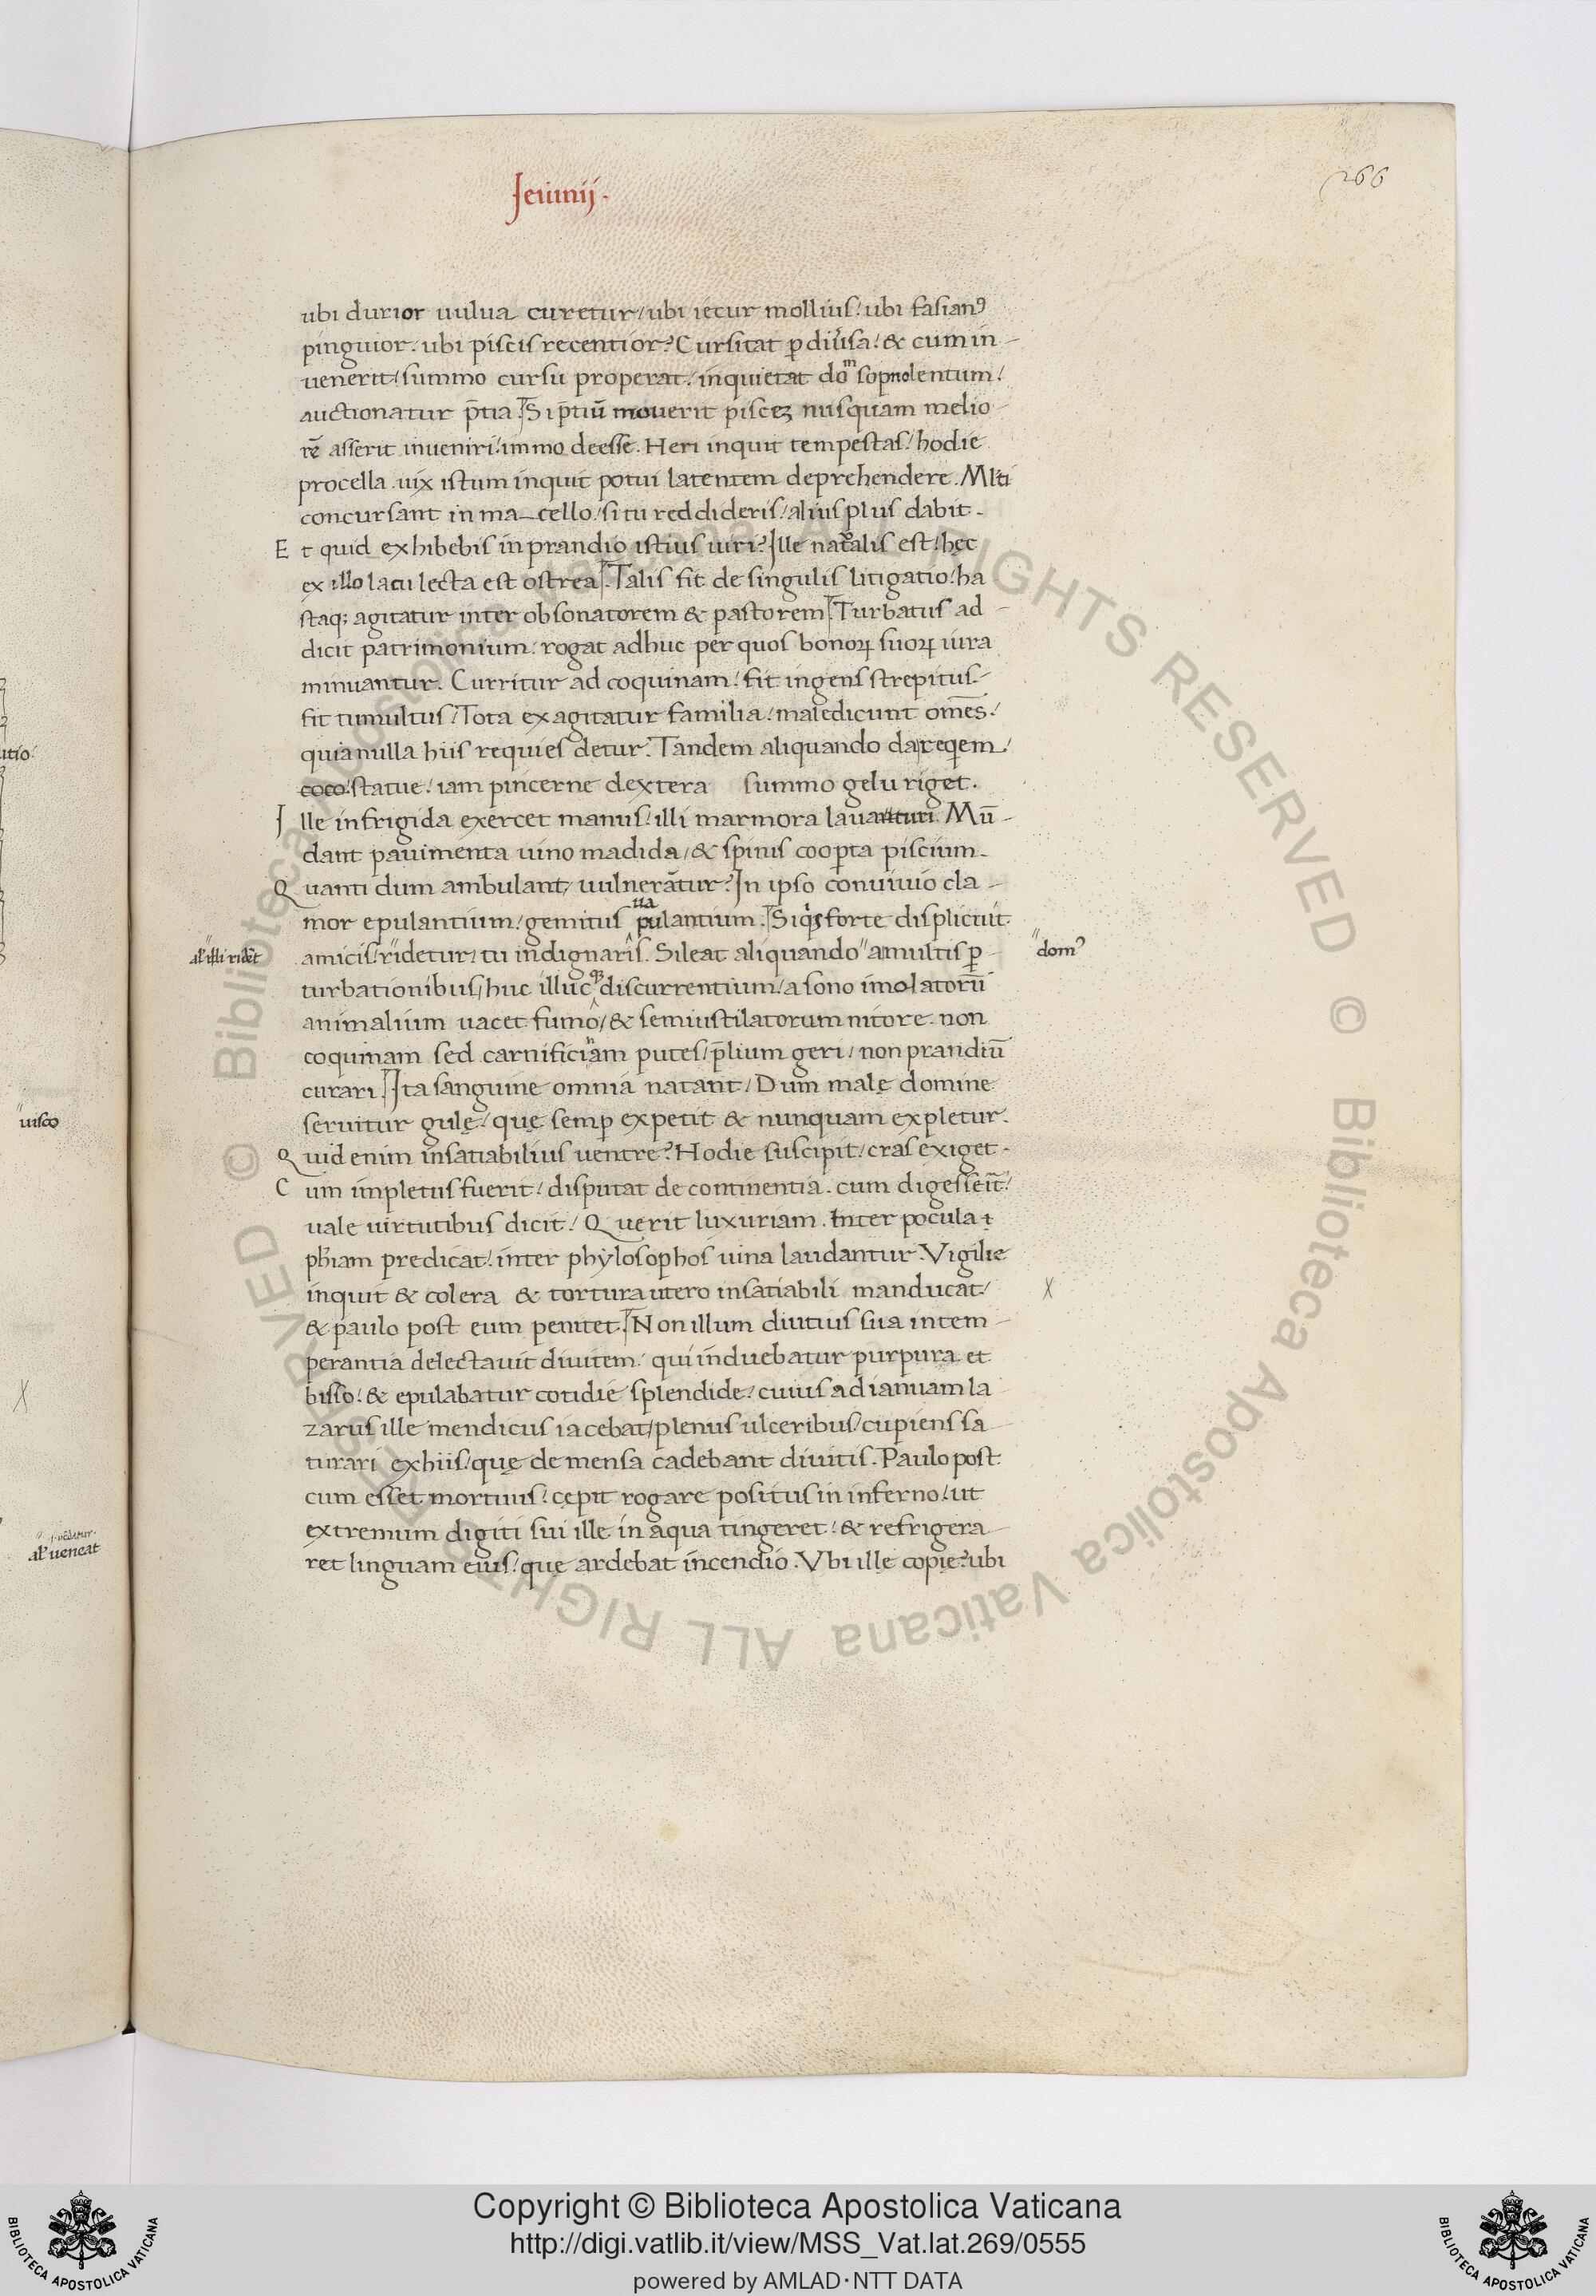 Ieiunij.
266
ubi durior uulua curetur/ubi iecur mollius/ubi fasianꝰ
pinguior. ubi piscis recentior? Cursitat ꝑ diu̾sa/ & cum in-
uenerit/ summo cursu properat/ inquietat doᵐ sopnolentum/
auctionatur p̄tia. Si p̄tiū mouerit piscez nusquam melio-
rē asserit inueniri/immo deesse. Heri inquit tempestas/ hodie
procella. uix istum inquit potui latentem deprehendere. Ml̓ti
concursant in ma-cello/ si tu reddideris/ alius plus dabit-
Et quid exhibebis in prandio istius uiri? Ille nat̾alis est/ hęc
ex illo lacu lecta est ostrea. Talis fit de singulis litigatio/ ha
staq; agitatur inter obsonatorem & pastorem. Turbatus ad-
dicit patrimonium. rogat adhuc per quos bonoꝝ suoꝝ iura
minuantur. Curritur ad coquinam/ fit ingens strepitus-
fit tumultus/ Tota exagitatur familia/ maledicunt om̄es/
quia nulla hiis requies detur. Tandem aliquando da reqem/
coco/ statue/ iam pincerne dextera summo gelu riget.
Ille infrigida exercet manus/ illi marmora lauanturi. Mū-
dant pauimenta uino madida/ & spinis cooꝑta piscium-
Quanti dum ambulant/ uulnerātur? In ipso conuiuio cla-
ua
mor epulantium/ gemitus pulantium. Siqͥs forte displicuit
al̓ illi ridēt
amicis/ ridetur/ tu indignaris. Sileat aliquando amultis ꝑ-
domꝰ
turbationibus/ huc illucqꝫ discurrentium/ a sono imolatorū
animalium uacet fumo/ & semiustilatorum nitore. non
coquinam sed carnificinam putes/ p̄lium geri/ non prandiū
curari. Ita sanguine omnia natant/ Dum malę domine
seruitur gulę/ quę semꝑ expetit & nunquam expletur.
Quid enim insatiabilius uentre? Hodie suscipit/ cras exiget-
Cum impletus fuerit/ disputat de continentia. cum digesserit/
uale uirtutibus dicit/ Querit luxuriam. Inter pocula
ph̄iam predicat/ inter phylosophos uina laudantur. Vigilie
inquit & colera & tortura utero insatiabili manducat/
X
& paulo post eum penitet. Non illum diutius sua intem-
perantia delectauit diuitem/ qui induebatur purpura et
bisso/ & epulabatur cotidie splendide/ cuius ad ianuam la
zarus ille mendicus iacebat/ plenus ulceribus/ cupiens sa-
turari exhiis/ quę de mensa cadebant diuitis. Paulo post
cum esset mortuus/ cępit rogare positus in inferno/ ut
extremum digiti sui ille in aqua tingeret/ & refrigera-
ret linguam eius/ quę ardebat incendio. Vbi illę copię? ubi
uisco
X
al̓ ueneat
Copyright © Biblioteca Apostolica Vaticana
http://digi.vatlib.it/view/MSS_Vat.lat.269/0555
powered by AMLAD·NTT DATA
BIBLIOTECA APOSTOLICA VATICANA
BIBLIOTECA APOSTOLICA VATICANA
© Biblioteca Apostolica Vaticana ALL RIGHTS RESERVED © Biblioteca Apostolica Vaticana ALL RIGHTS RESERVED